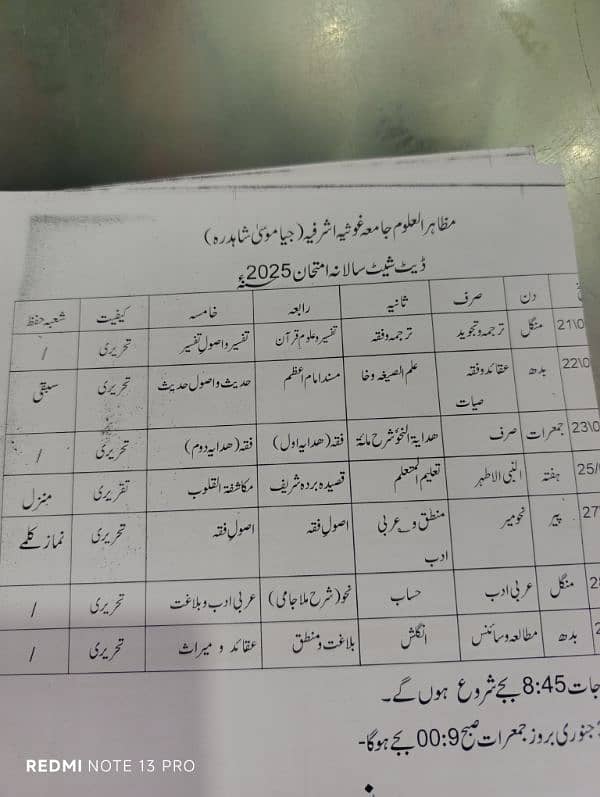 مظاہر العلوم جامعہ غوثیہ اشرفیہ (جیا موسیٰ شاہدرہ)
ڈیٹ شیٹ سالانہ امتحان 2025ء
دن صرف ثانیہ رابعہ خامسہ کیفیت شعبہ حفظ
21\0 منگل ترجمہ و تجوید ترجمہ و فقہ تفسیر و علوم قرآن تفسیر و اصول تفسیر تحریری /
22\0 بدھ عقائد و فقہ علم الصیغہ و خا مسند امام اعظم حدیث و اصول حدیث تحریری سبقی
صیات
23\0 جمعرات صرف ھدایۃ النحو شرح مائۃ فقہ (ھدایہ اول) فقہ (ھدایہ دوم) تحریری /
25/ ہفتہ النبی الاطہر تعلیم المتعلم قصیدہ بردہ شریف مکاشفۃ القلوب تقریری منزل
27 پیر نحومیر منطق و عربی اصول فقہ اصول فقہ تحریری نماز کلمے
ادب
2 منگل عربی ادب حساب نحو (شرح ملا جامی) عربی ادب و بلاغت تحریری /
2 بدھ مطالعہ و سائنس انگلش بلاغت و منطق عقائد و میراث تحریری /
جات 8:45 بجے شروع ہوں گے۔
جنوری بروز جمعرات صبح 9:00 بجے ہوگا-
REDMI NOTE 13 PRO